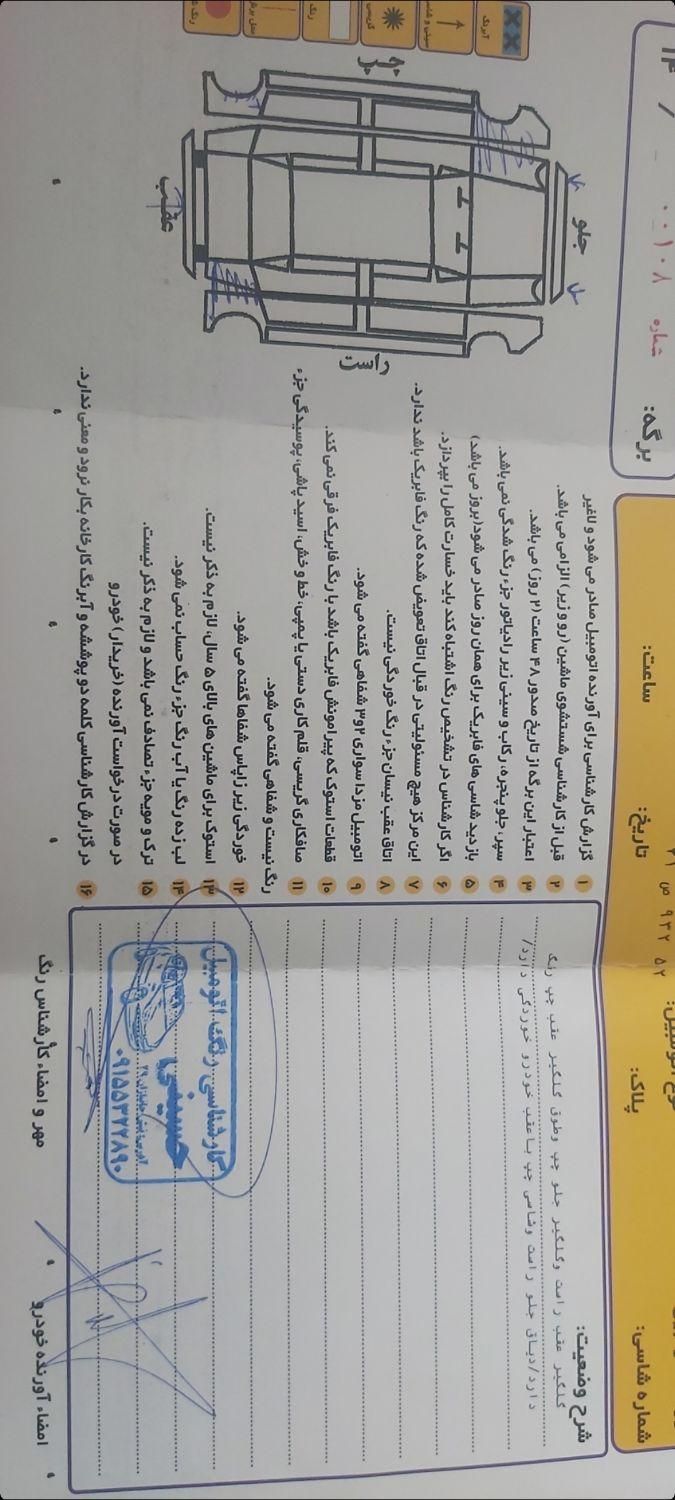 برگه:
شماره
ساعت:
تاریخ:
پلاک:
شماره شاسی:
۱ گزارش کارشناسی برای آورنده اتومبیل صادر می شود و لاغیر
۲ قبل از کارشناسی شستشوی ماشین (رو و زیر) الزامی می باشد.
۳ اعتبار این برگه از تاریخ صدور ۴۸ ساعت (۲ روز) می باشد.
۴ سپر، جلو پنجره، رکاب و سینی زیر رادیاتور جزء رنگ شدگی نمی باشد.
۵ بازدید شاسی های فابریک برای همان روز صادر می شود(بروز می باشد)
۶ اگر کارشناس در تشخیص رنگ اشتباه کند باید خسارت کامل را بپردازد.
۷ این مرکز هیچ مسئولیتی در قبال اتاق تعویض شده که رنگ فابریک باشد ندارد.
۸ اتاق عقب نیسان جزء رنگ خوردگی نیست.
۹ اتومبیل مزدا سواری ۲و۳ شفاهی گفته می شود.
۱۰ قطعات استوک که پیرامونش فابریک باشد با رنگ فابریک فرقی نمی کند.
۱۱ صافکاری گریسی، قلم کاری دستی یا پمپی، خط و خش، اسید پاشی، پوسیدگی جزء
رنگ نیست و شفاهی گفته می شود.
۱۲ خوردگی زیر زاپاس شفاها گفته می شود.
۱۳ استوک برای ماشین های بالای ۵ سال، لازم به ذکر نیست.
۱۴ لب زده رنگ یا آب رنگ جزء رنگ حساب نمی شود.
۱۵ ترک و مویه جزء تصادف نمی باشد و لازم به ذکر نیست.
در صورت درخواست آورنده (خریدار) خودرو
۱۶ در گزارش کارشناسی کلمه دو پوششه و آبرنگ کارخانه بکار نرود و معنی ندارد.
شرح وضعیت:
گلگیر عقب راست وگلگیر جلو چپ وطوق گلگیر عقب چپ رنگ
دارد/دیاق جلو راست وشاسی چپ باعقب خودرو خوردگی دارد/
جلو
راست
عقب
چپ
آبرنگ
رنگ
کارشناسی رنگ اتومبیل
حسینی
۰۹۱۵۵۳۲۲۸۹۰
مهر و امضاء کارشناس رنگ
امضاء آورنده خودرو